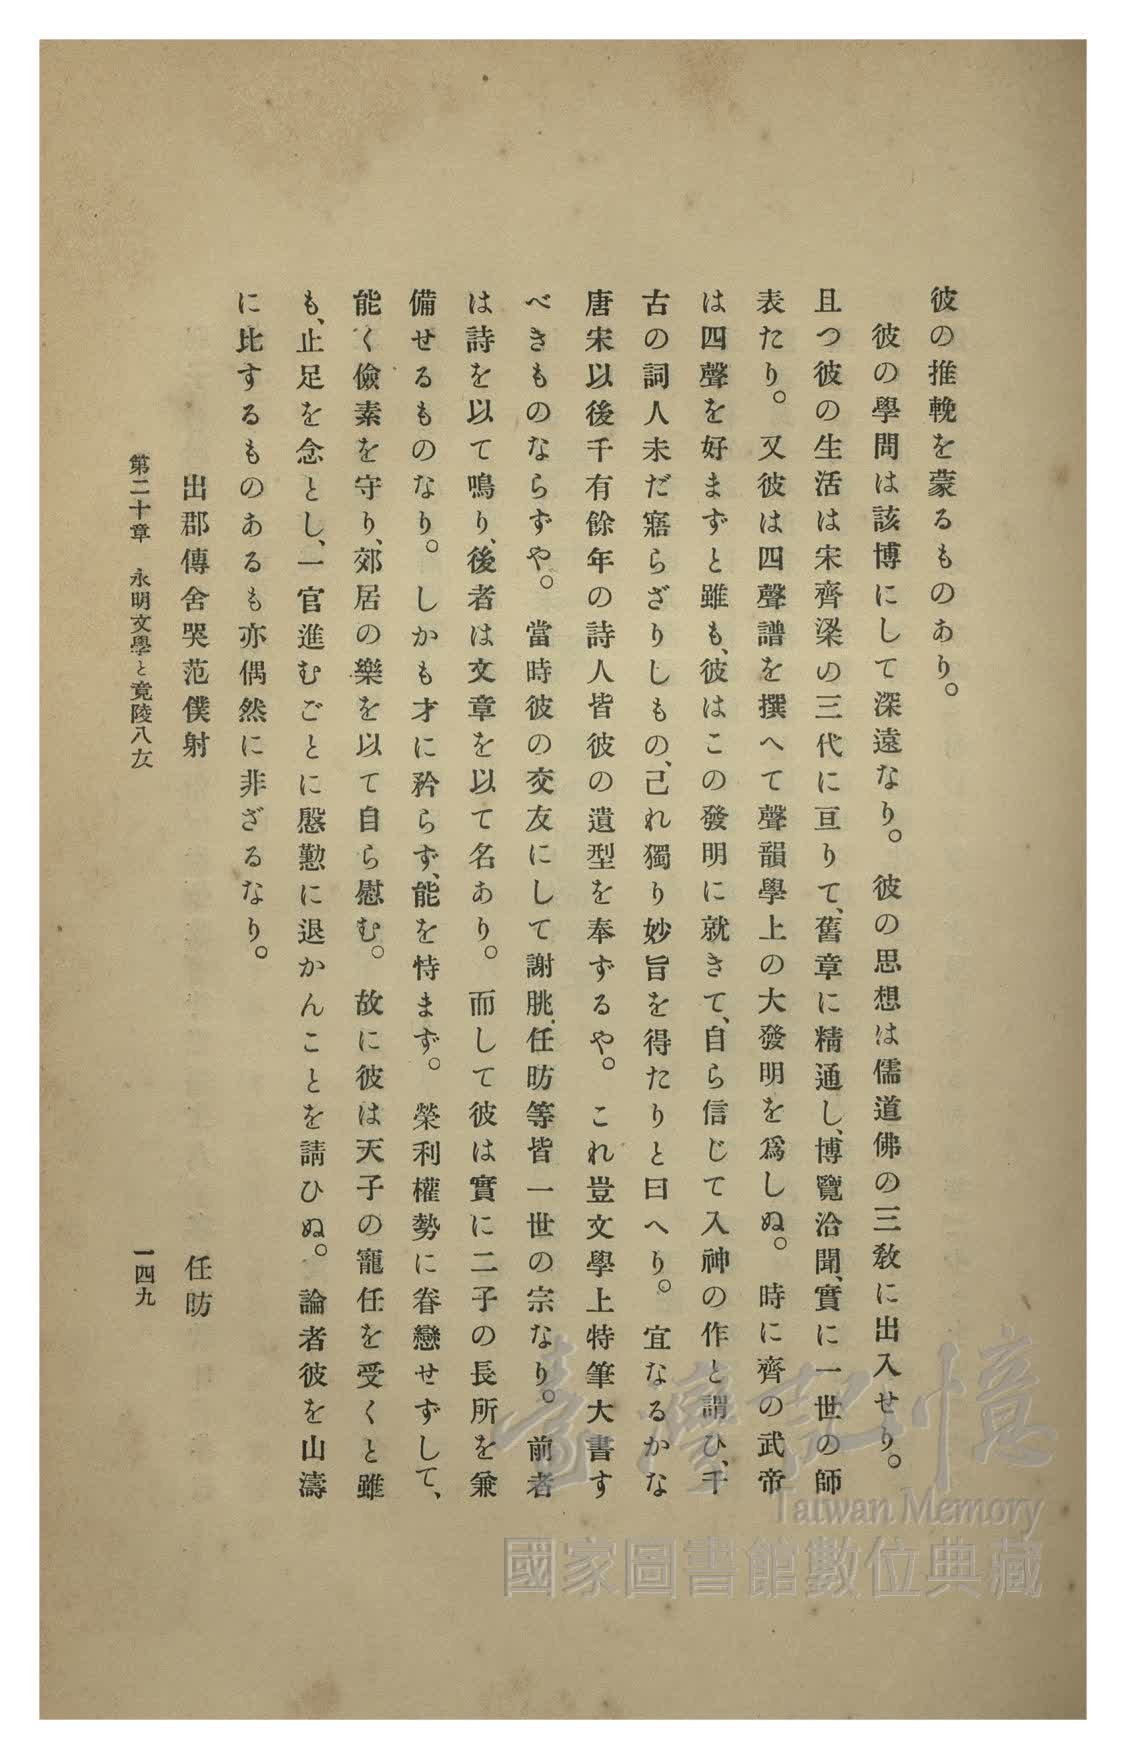 彼の推輓を蒙るものあり。
彼の學問は該博にして深遠なり。彼の思想は儒道佛の三敎に出入せり。
且つ彼の生活は宋齊梁の三代に亘りて、舊章に精通し、博覽洽聞、實に一世の師
表たり。又彼は四聲譜を撰へて聲韻學上の大發明を爲しぬ。時に齊の武帝
は四聲を好まずと雖も、彼はこの發明に就きて、自ら信じて入神の作と謂ひ、千
古の詞人未だ寤らざりしもの、己れ獨り妙旨を得たりと曰へり。宜なるかな
唐宋以後千有餘年の詩人皆彼の遺型を奉ずるや。これ豈文學上特筆大書す
べきものならずや。當時彼の交友にして謝朓、任昉等皆一世の宗なり。前者
は詩を以て鳴り、後者は文章を以て名あり。而して彼は實に二子の長所を兼
備せるものなり。しかも才に矜らず、能を恃まず。榮利權勢に眷戀せずして、
能く儉素を守り、郊居の樂を以て自ら慰む。故に彼は天子の寵任を受くと雖
も、止足を念とし、一官進むごとに慇懃に退かんことを請ひぬ。論者彼を山濤
に比するものあるも亦偶然に非ざるなり。
出郡傳舍哭范僕射 任昉
第二十章 永明文學と竟陵八友 一四九
臺灣記憶
Taiwan Memory
國家圖書館數位典藏